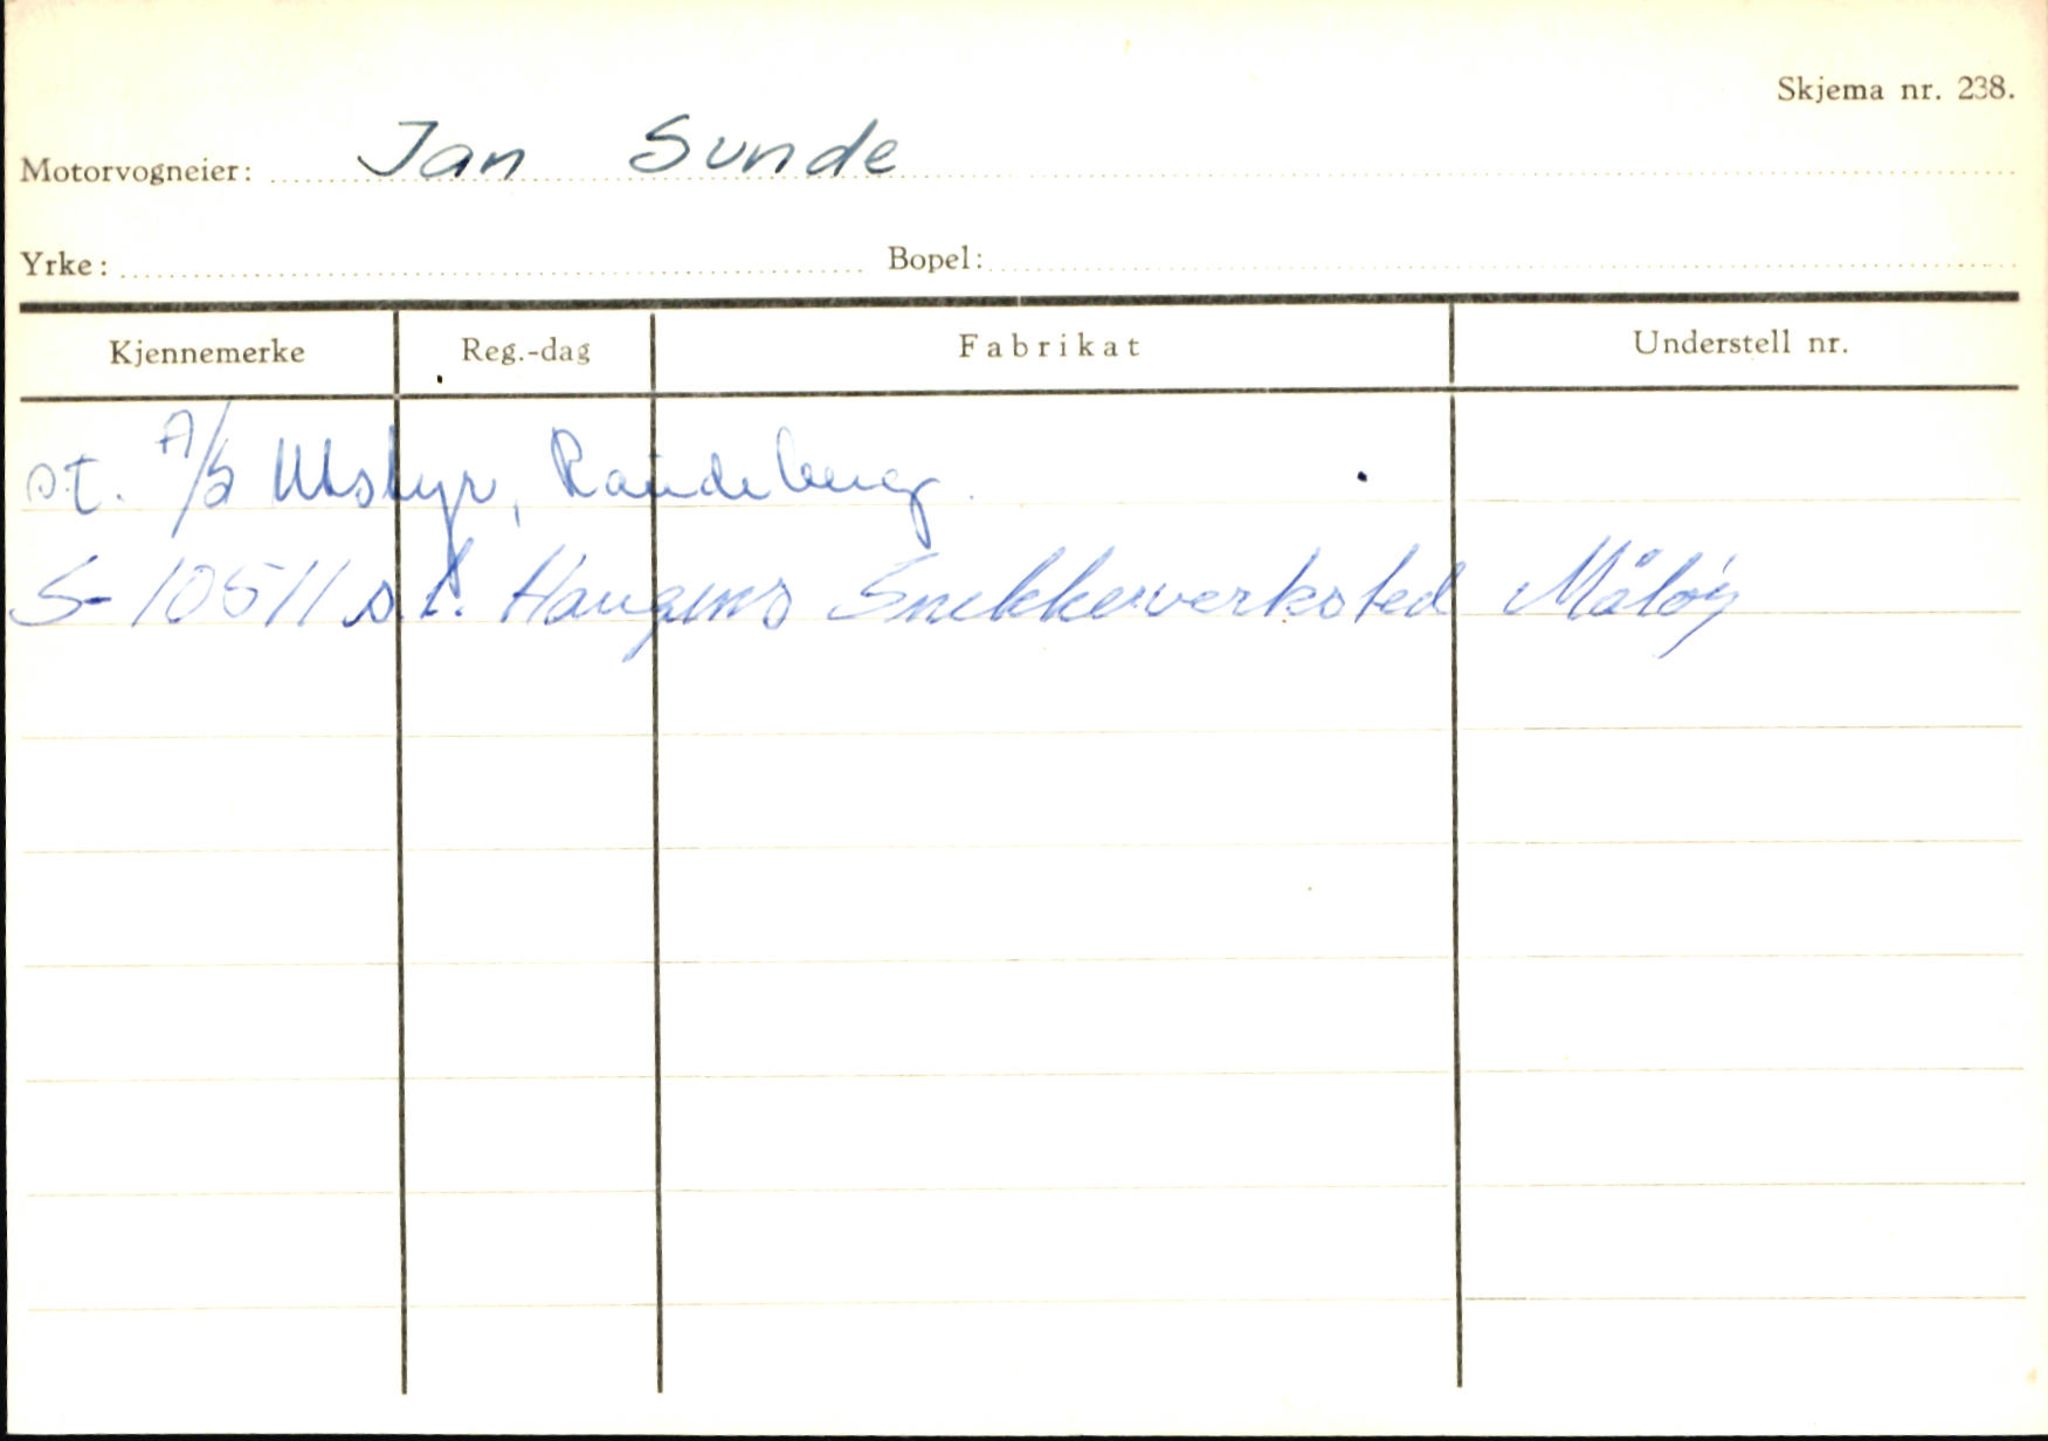 Skjema nr. 238.
Motorvogneier: Jan Sunde
Yrke: Bopel:
Kjennemerke Reg.-dag Fabrikat Understell nr.
s.t. A/S Utstyr, Raudeberg.
S-10511 s.t. Haugens Snekkerverksted Måløy